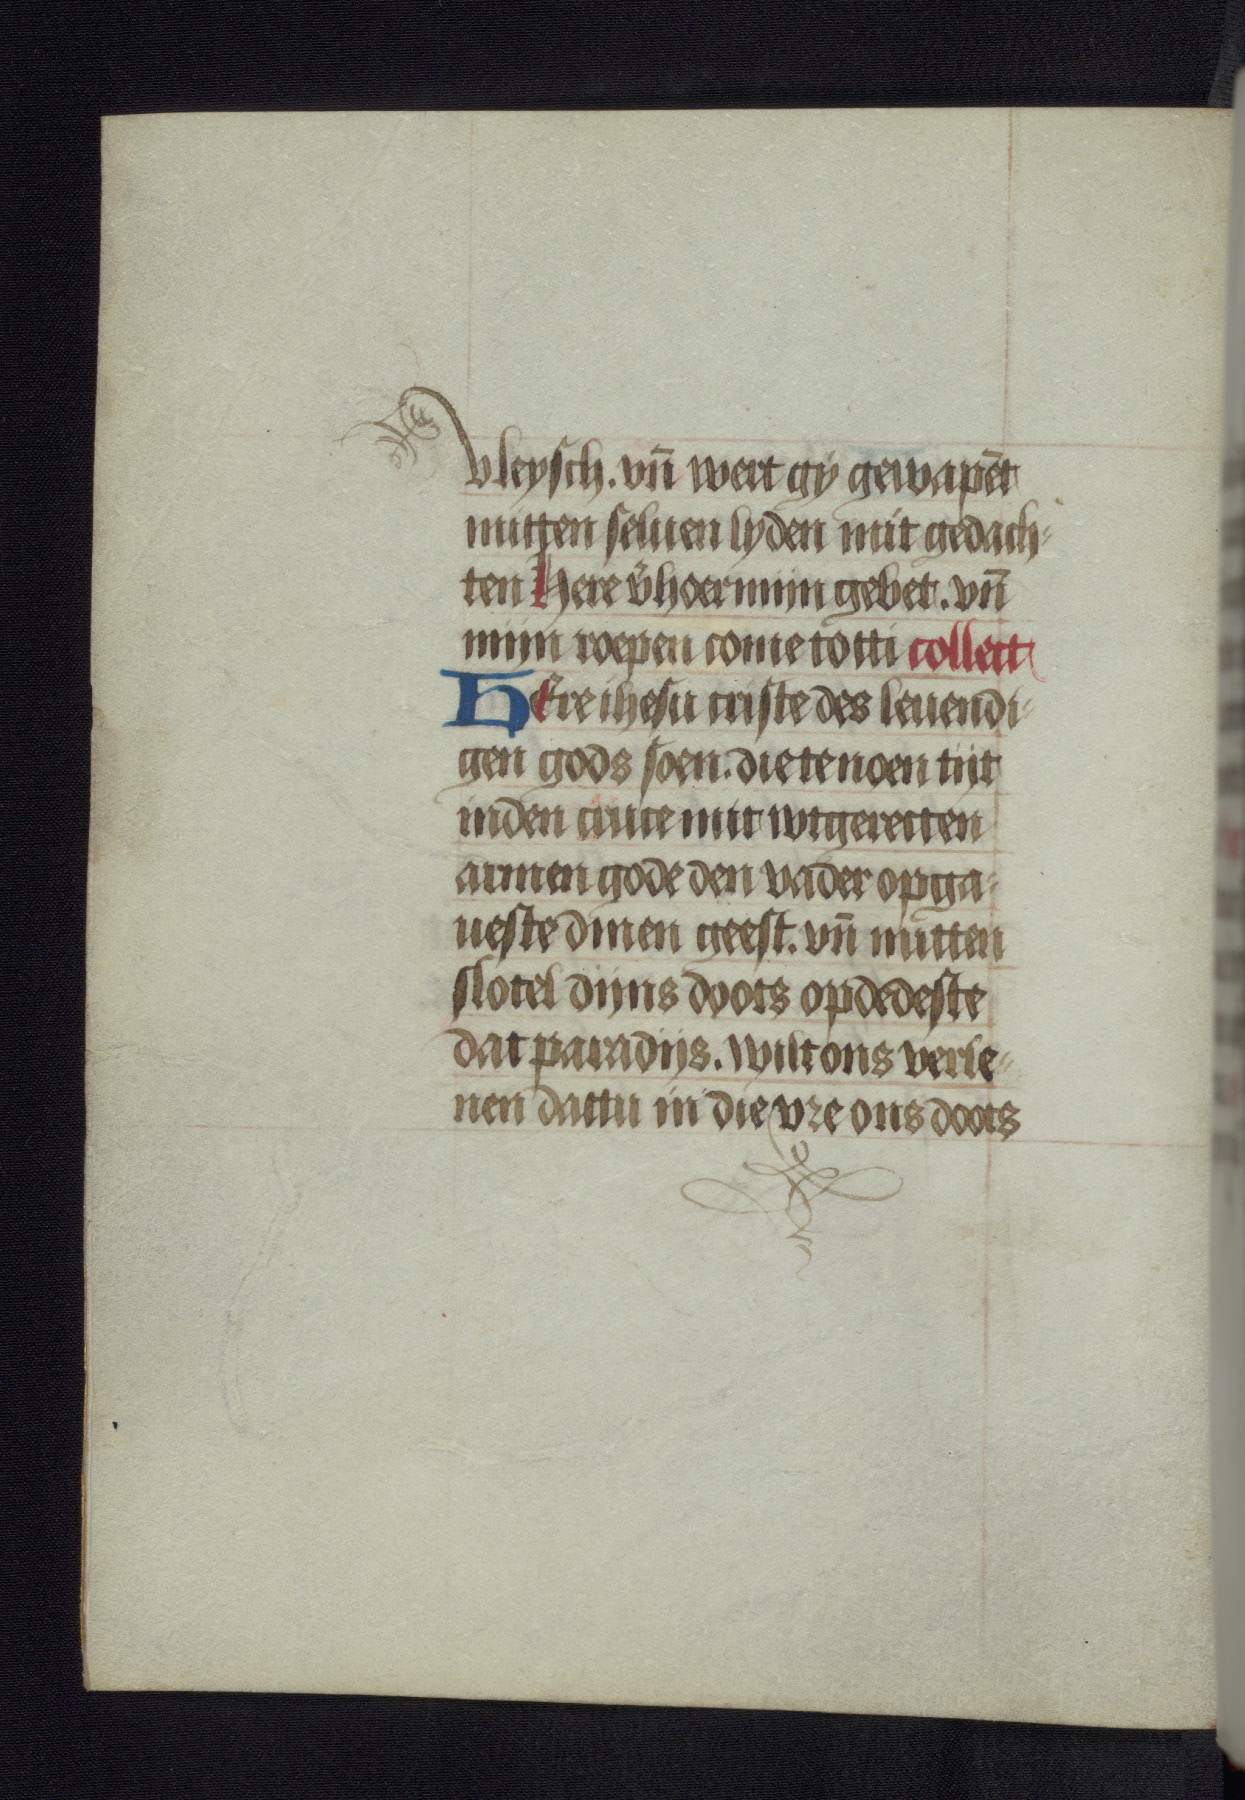 vleysch. vn̄ wert gy gewapēt
mitten seluen lyden mit gedach-
ten Here v̄hoer mijn gebet. vn̄
mijn roepen come totti collect
HEre ihesu criste des leuendi-
gen gods soen. die te noen tijt
inden cruce mit wtgerecten
armen gode den vader opga-
ueste dinen geest. vn̄ mitten
slotel dijns doots opdedeste
dat paradijs. Wilt ons verle-
nen dattu in die vre ons doots